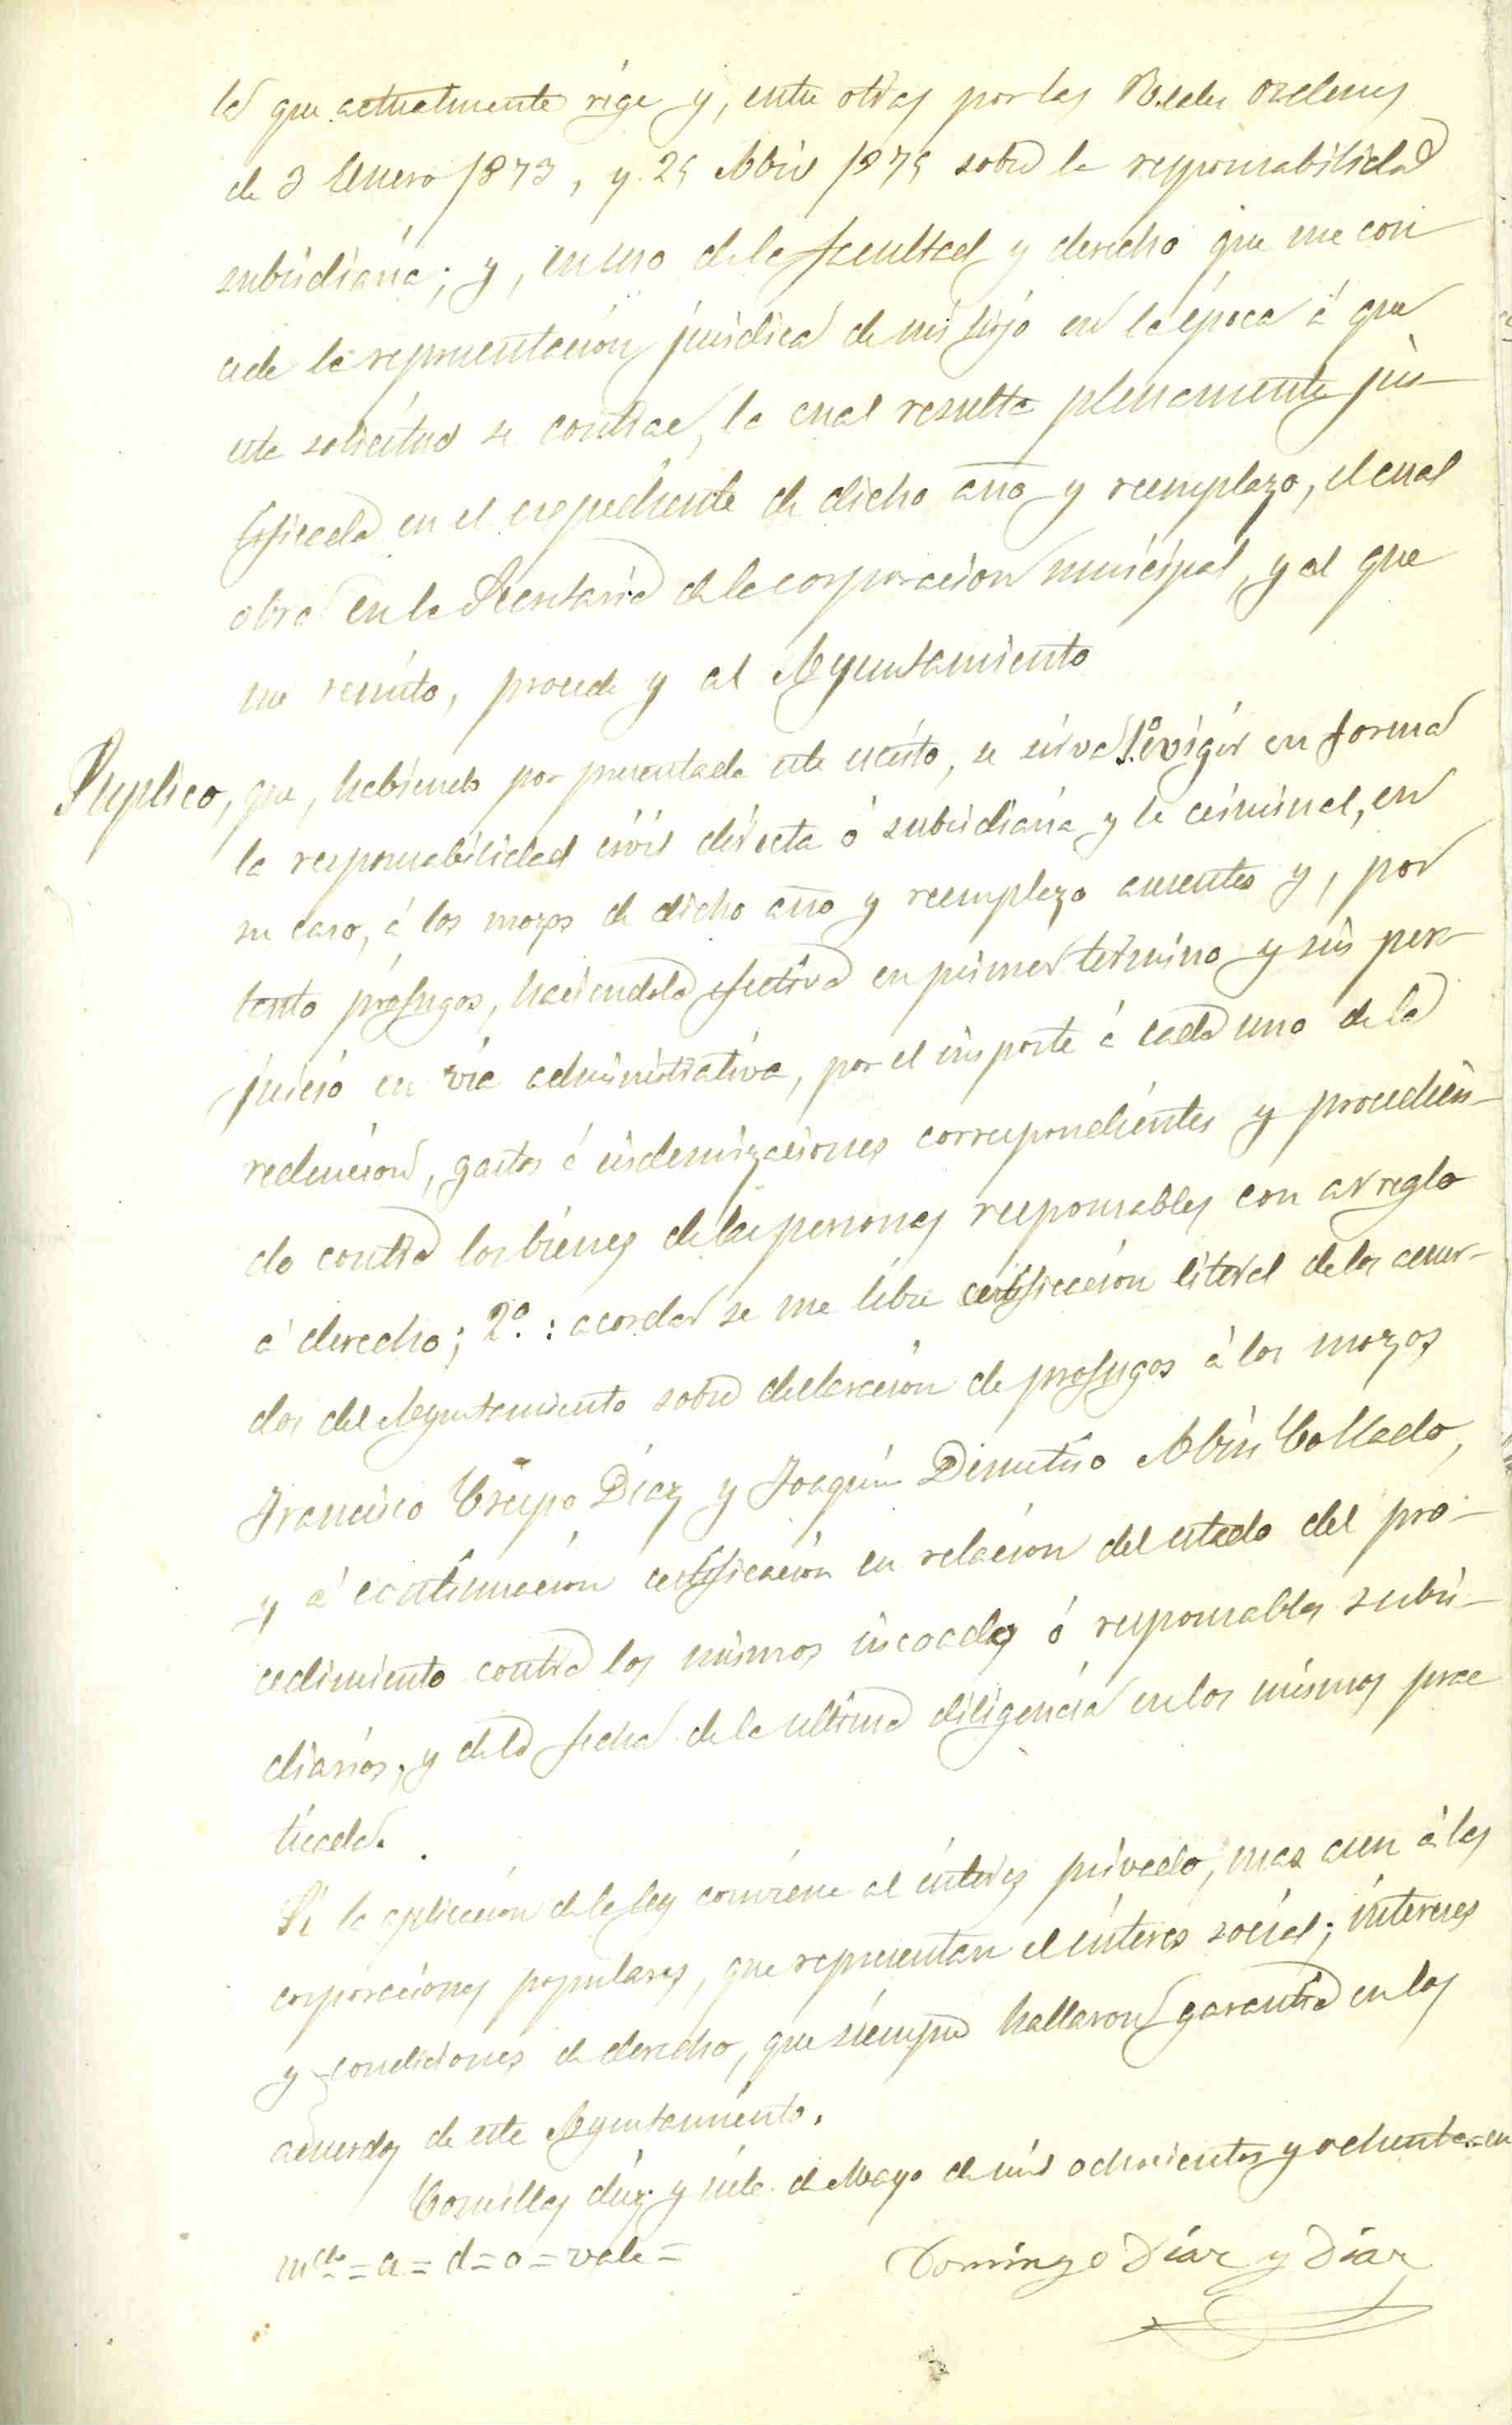 la que actualmente rige y, entre otras por las Reales ordenes
de 3 Enero 1873, y 25 Abril 1875 sobre la responsabilidad
subsidiaria; y, en uso de la facultad y derecho que me con-
cede la representación juridica de mi hijo en la época á que
este solicitud se contrae, la cual resulta plenamente jus-
tificada en el expediente de dicho año y reemplazo, el cual
obra en la Secretaria de la corporacion municipal, y al que
me remito, procede y al Ayuntamiento
Suplico, que, habiendo por presentado este escrito, se sirva 1.º exigir en forma
la responsabilidad civil directa ó subsidiaria y la criminal, en
su caso, á los mozos de dicho año y reemplazo ausentes y, por
tanto prófugos, haciendola efectiva en primer termino y sin per-
juicio en via administrativa, por el importe á cada uno de la
redencion, gastos é indemnizaciones correspondientes y procedien-
do contra los bienes de las personas responsables con arreglo
á derecho; 2.º: acordar se me libre certificación literal de los acuer-
dos del Ayuntamiento sobre declaración de profugos á los mozos
Francisco Crespo Diaz y Joaquin Demetrio Abin Collado,
y á continuación certificación en relación del estado del pro-
cedimiento contra los mismos incoado ó responsables subsi-
diarios, y de la fecha de la ultima diligencia en los mismos prac
ticada.
Si la aplicación de la ley conviene al interés privado, mas aun á las
corporaciones populares, que representan el interés social; intereses
y condiciones de derecho, que siempre hallaron garantia en los
acuerdos de este Ayuntamiento.
Comillas diez y siete de Mayo de mil ochocientos y ochenta = en
mdo = a = d = o = vale =
Domingo Díaz y Díaz